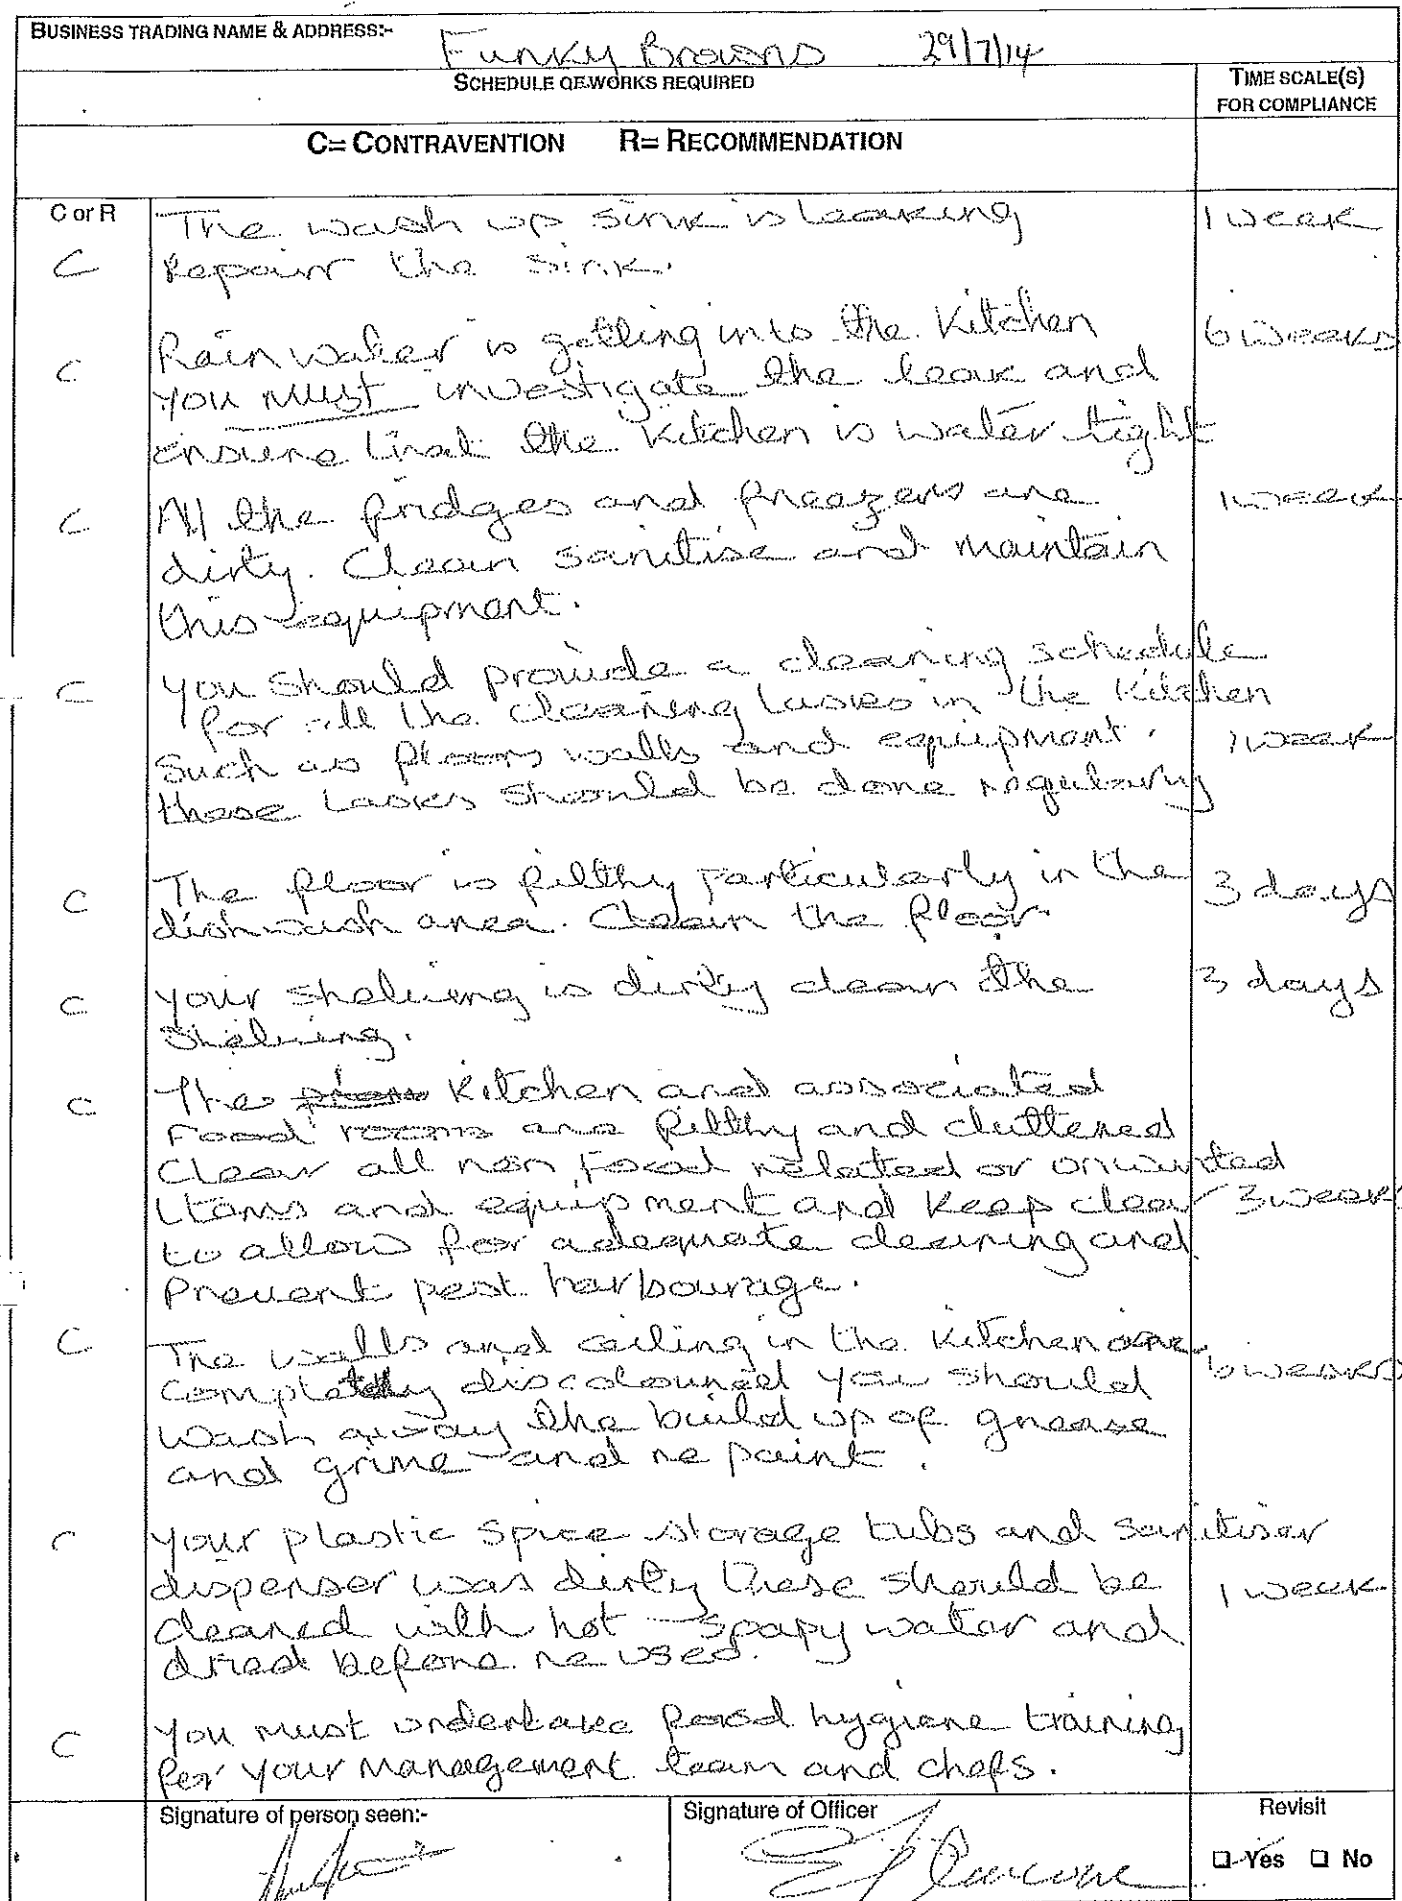 BUSINESS TRADING NAME & ADDRESS:- Funky Browns 29/7/14
SCHEDULE OF WORKS REQUIRED
TIME SCALE(S)
FOR COMPLIANCE
C= CONTRAVENTION R= RECOMMENDATION
C or R
The wash up sink is leaking 1 week
C Repair the sink.
Rain water is getting into the Kitchen 6 weeks
C you must investigate the leak and
ensure that the kitchen is water tight
C All the fridges and freezers are 1 week
dirty. Clean sanitise and maintain
this equipment.
C you should provide a cleaning schedule
for all the cleaning tasks in the Kitchen
Such as floors walls and equipment. 1 week
these tasks should be done regularly
C The floor is filthy particularly in the 3 days
dishwash area. Clean the floor.
C your shelving is dirty clean the 3 days
shelving.
C The Kitchen and associated
Food rooms are filthy and cluttered
Clear all non food related or unwanted
items and equipment and keep clear 3 weeks
to allow for adequate cleaning and
Prevent pest harbourage.
C The walls and ceiling in the kitchen are 6 weeks
completely discoloured you should
wash away the build up of grease
and grime and re paint.
C your plastic Spice storage tubs and sanitiser
dispenser was dirty these should be 1 week
cleaned with hot soapy water and
dried before re used.
C You must undertake food hygiene training
for your Management team and chefs.
Signature of person seen:-
Signature of Officer
Revisit
Yes No